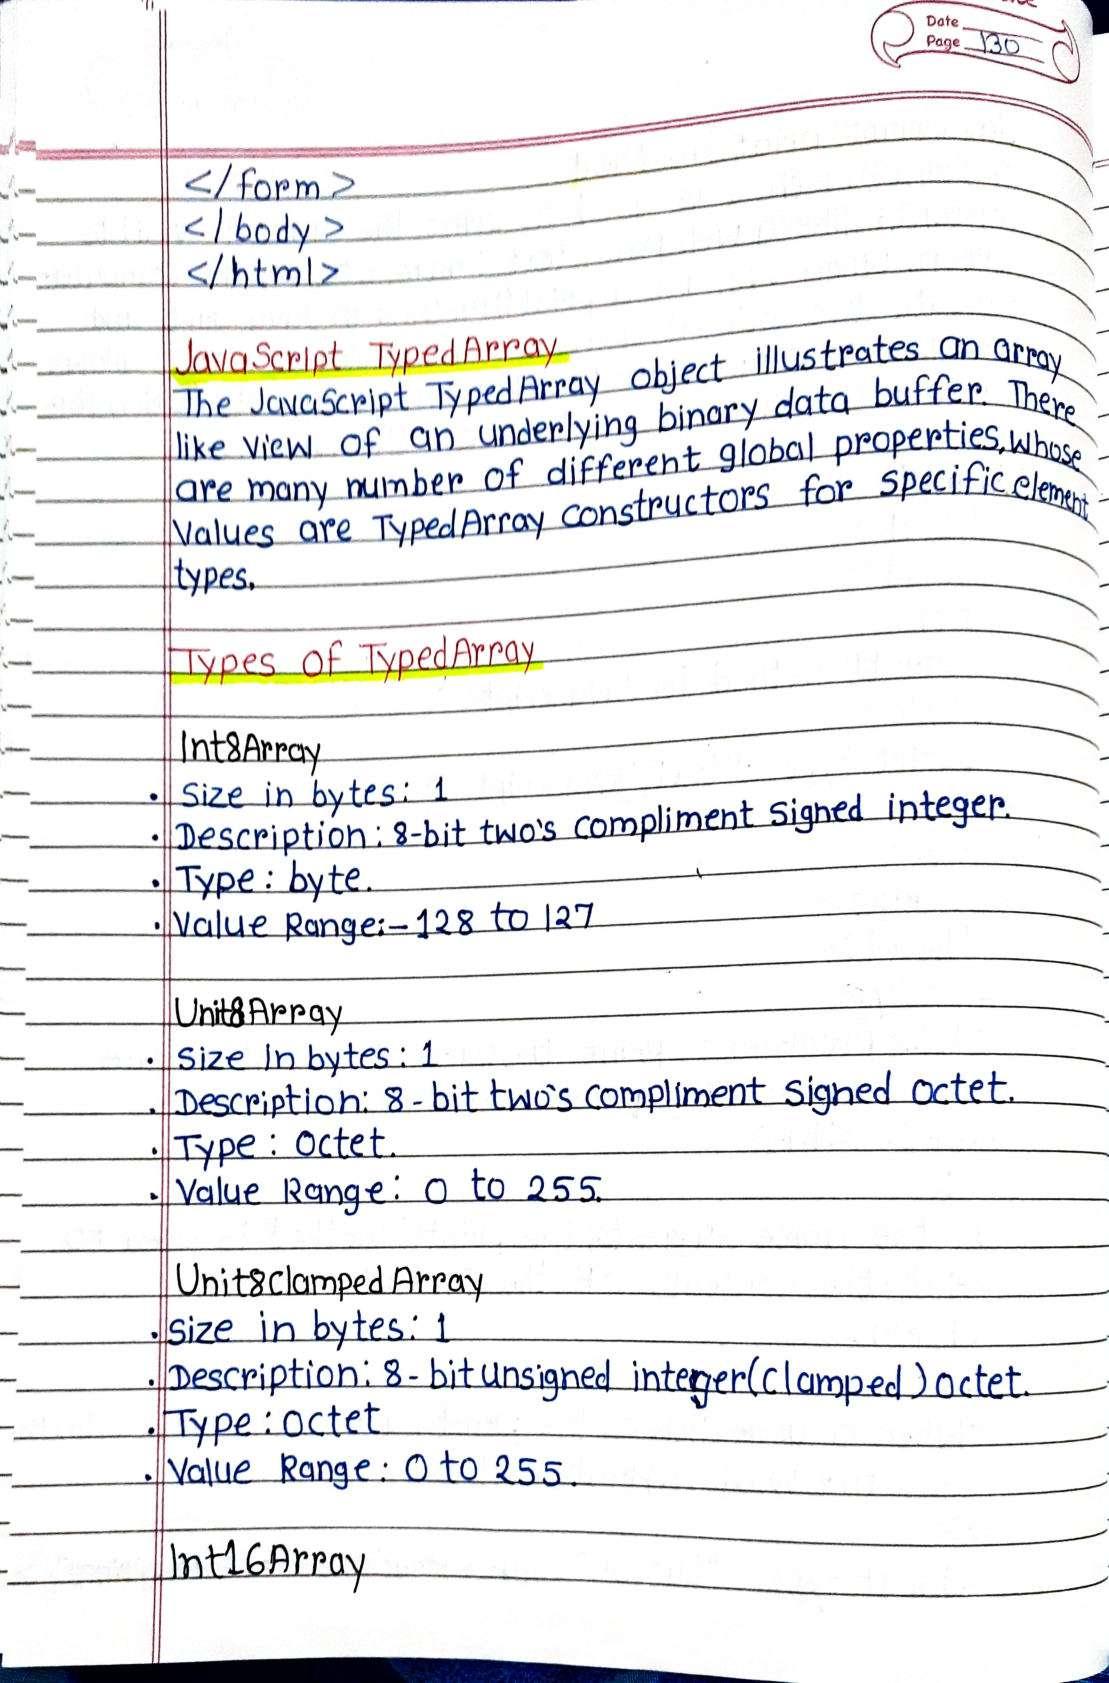 Date
Page 130
</form>
</body>
</html>
JavaScript TypedArray
The JavaScript TypedArray object illustrates an array
like view of an underlying binary data buffer. There
are many number of different global properties, whose
values are TypedArray constructors for specific element
types.
Types of TypedArray
Int8Array
• Size in bytes: 1
• Description: 8-bit two's compliment signed integer.
• Type: byte.
• Value Range:-128 to 127
Unit8Array
• Size In bytes: 1
• Description: 8-bit two's compliment signed octet.
• Type: octet.
• Value Range: 0 to 255.
Unit8clampedArray
• Size in bytes: 1
• Description: 8-bit unsigned integer(clamped) octet.
• Type: octet
• Value Range: 0 to 255.
Int16Array